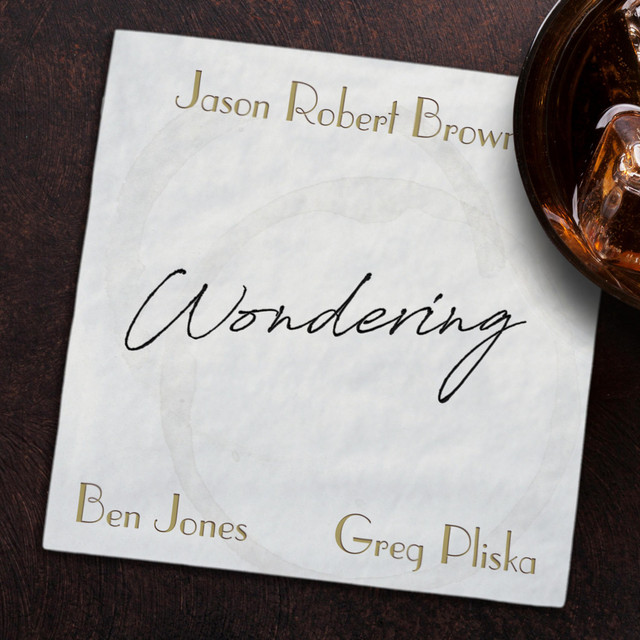 Jason Robert Brown
Wondering
Ben Jones
Greg Pliska